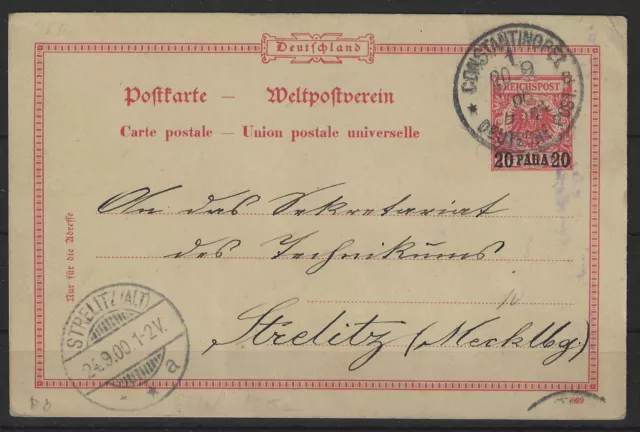 Deutschland
Postkarte — Weltpostverein
Carte postale — Union postale universelle
CONSTANTINOPEL 1
20 9
DEUTSCHE POST
REICHSPOST
20 PARA 20
Nur für die Adresse
An das Sekretariat
des Technikums
Strelitz (Mecklbg.)
STRELITZ (ALT)
24.9.00 1-2V.
* a